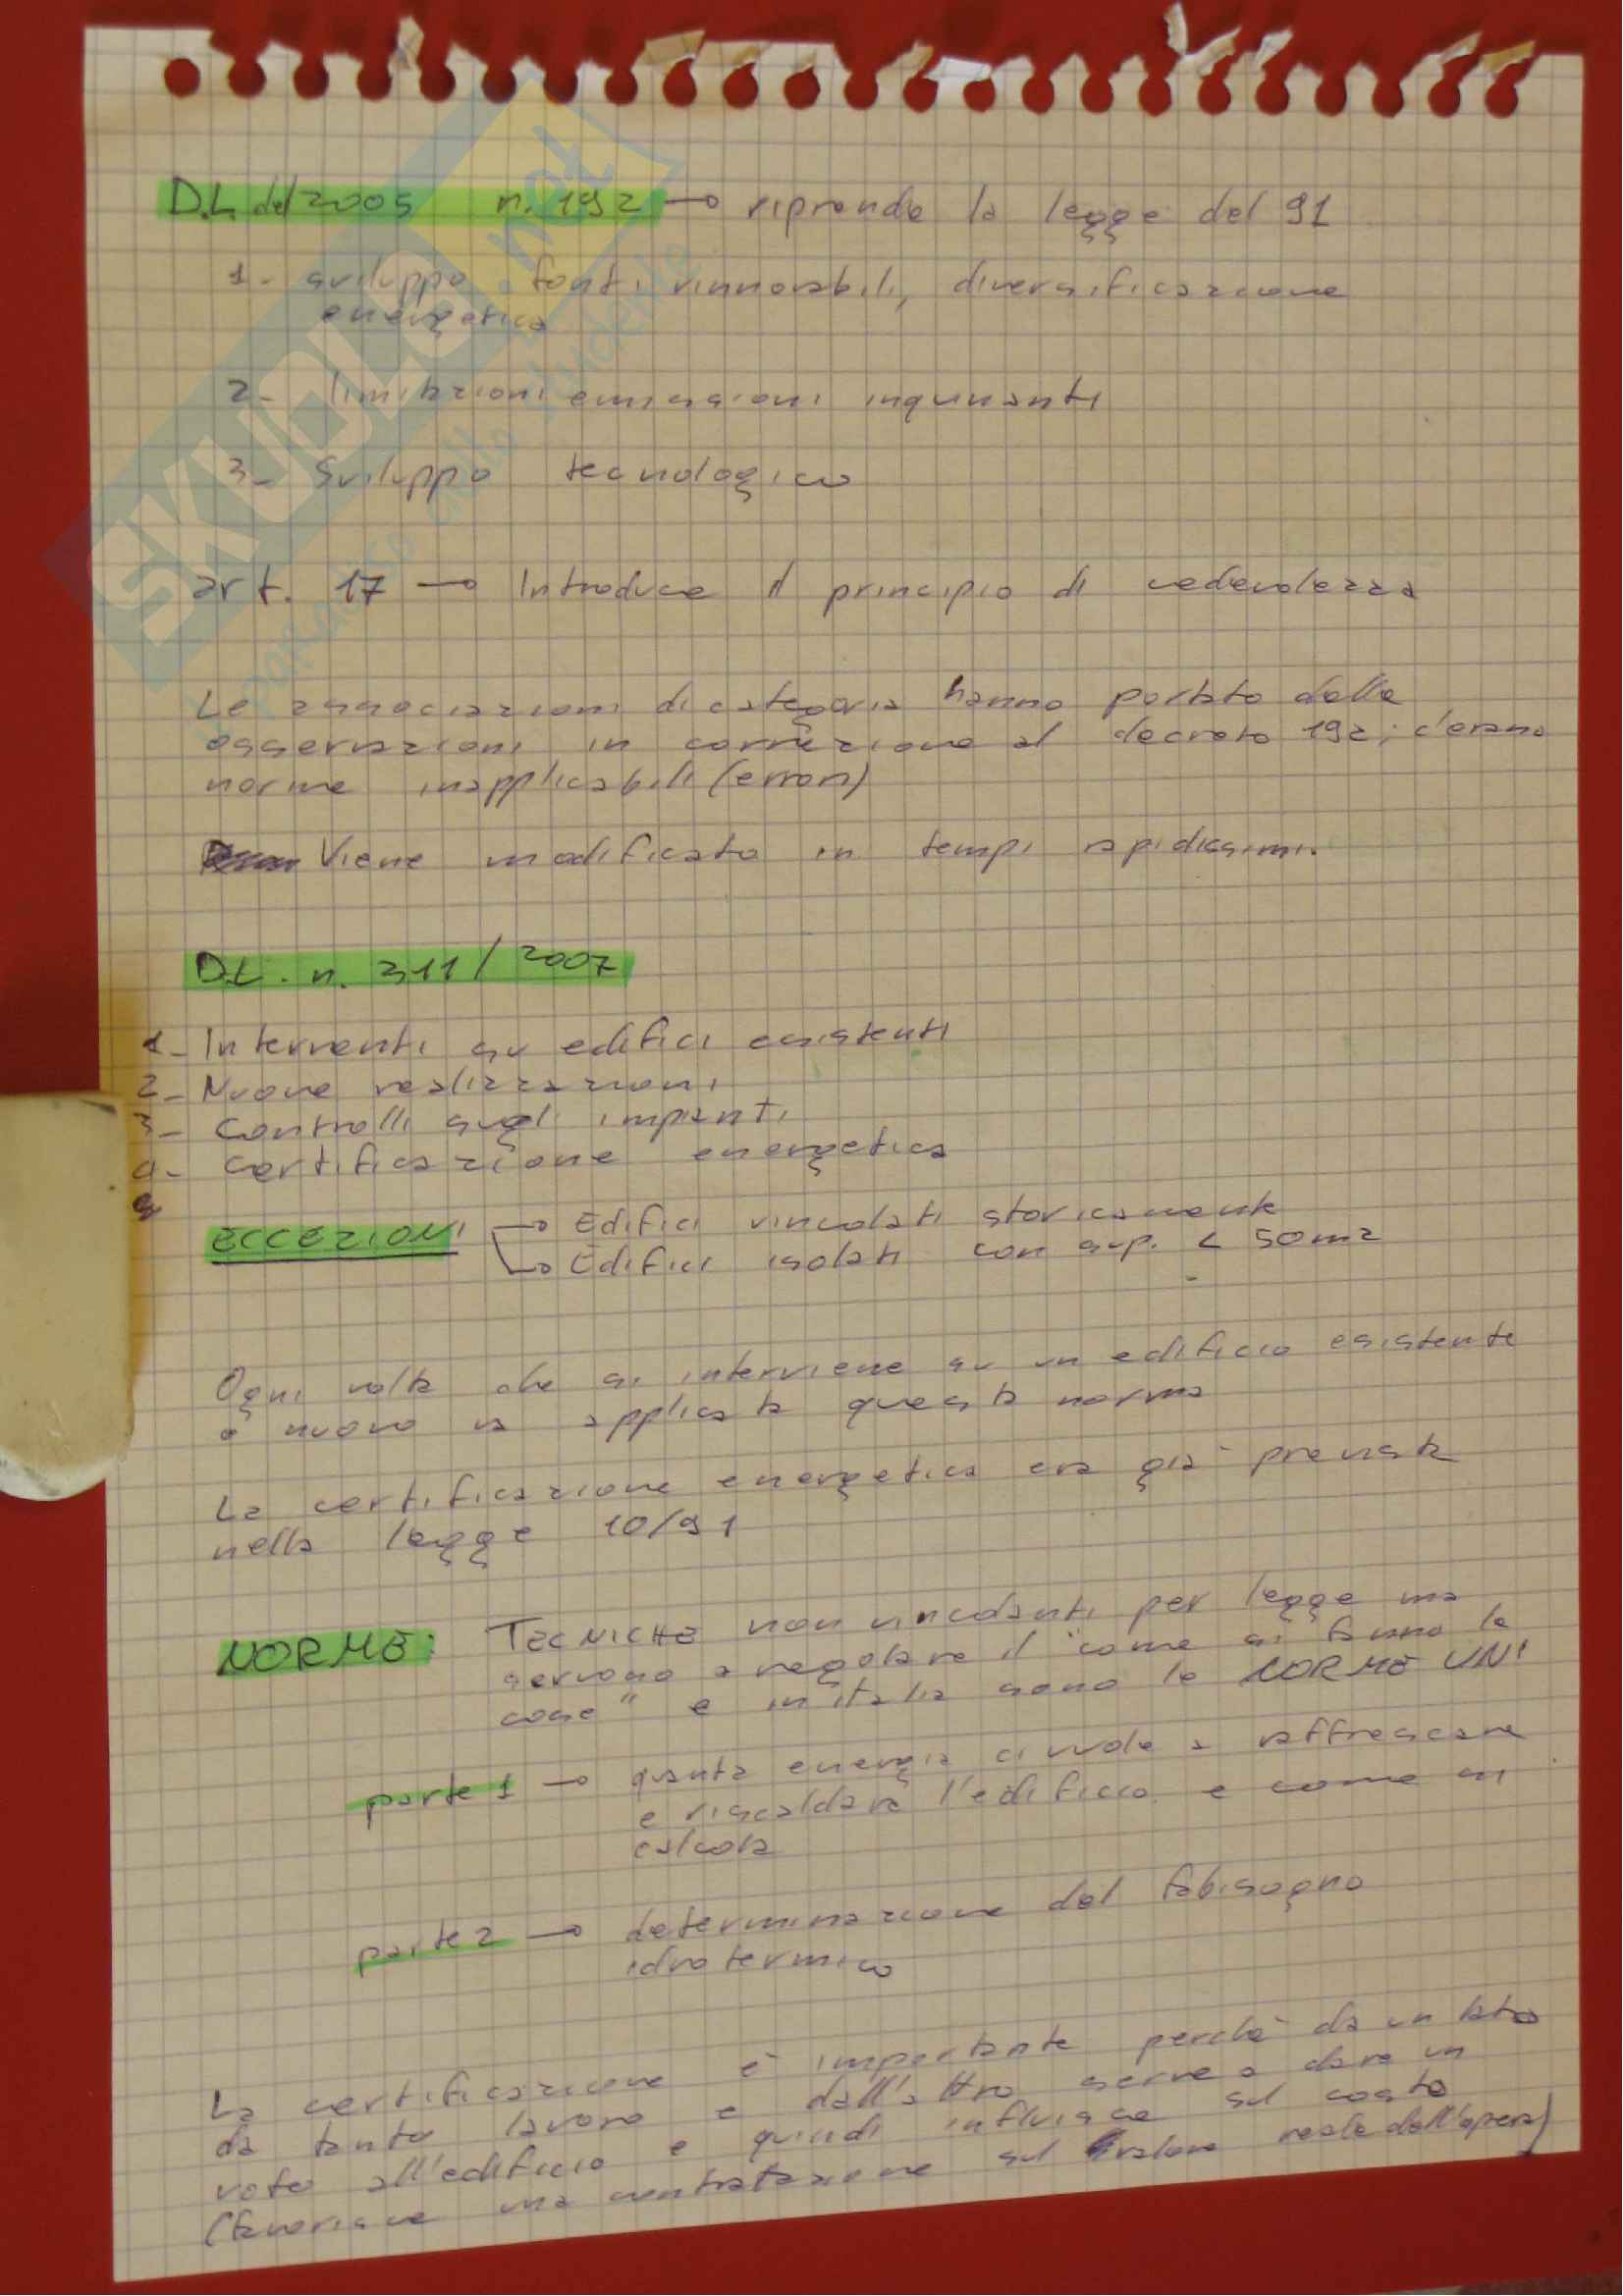 D.L. del 2005 n. 192 → riprende la legge del 91
1- sviluppo fonti rinnovabili, diversificazione
energetica
2- limitazioni emissioni inquinanti
3- Sviluppo tecnologico
art. 17 → Introduce il principio di cedevolezza
Le associazioni di categoria hanno portato delle
osservazioni in correzione al decreto 192; c'erano
norme inapplicabili (errori)
Viene modificato in tempi rapidissimi.
D.L. n. 311/2007
1- Interventi su edifici esistenti
2- Nuove realizzazioni
3- Controlli sugli impianti
4- Certificazione energetica
ECCEZIONI → Edifici vincolati storicamente
→ Edifici isolati con sup. < 50m2
Ogni volta che si interviene su un edificio esistente
o nuovo va applicata questa norma
La certificazione energetica era già prevista
nella legge 10/91
NORME: TECNICHE non vincolanti per legge ma
servono a regolare il "come si fanno le
cose" e in italia sono le NORME UNI
parte 1 → quanta energia ci vuole a raffrescare
e riscaldare l'edificio e come si
calcola
parte 2 → determinazione del fabisogno
idrotermico
La certificazione è importante perchè da un lato
da tanto lavoro e dall'altro serve a dare un
voto all'edificio e quindi influisce sul costo
(favorisce una contrattazione sul valore reale dell'opera)
SKUOLA.net